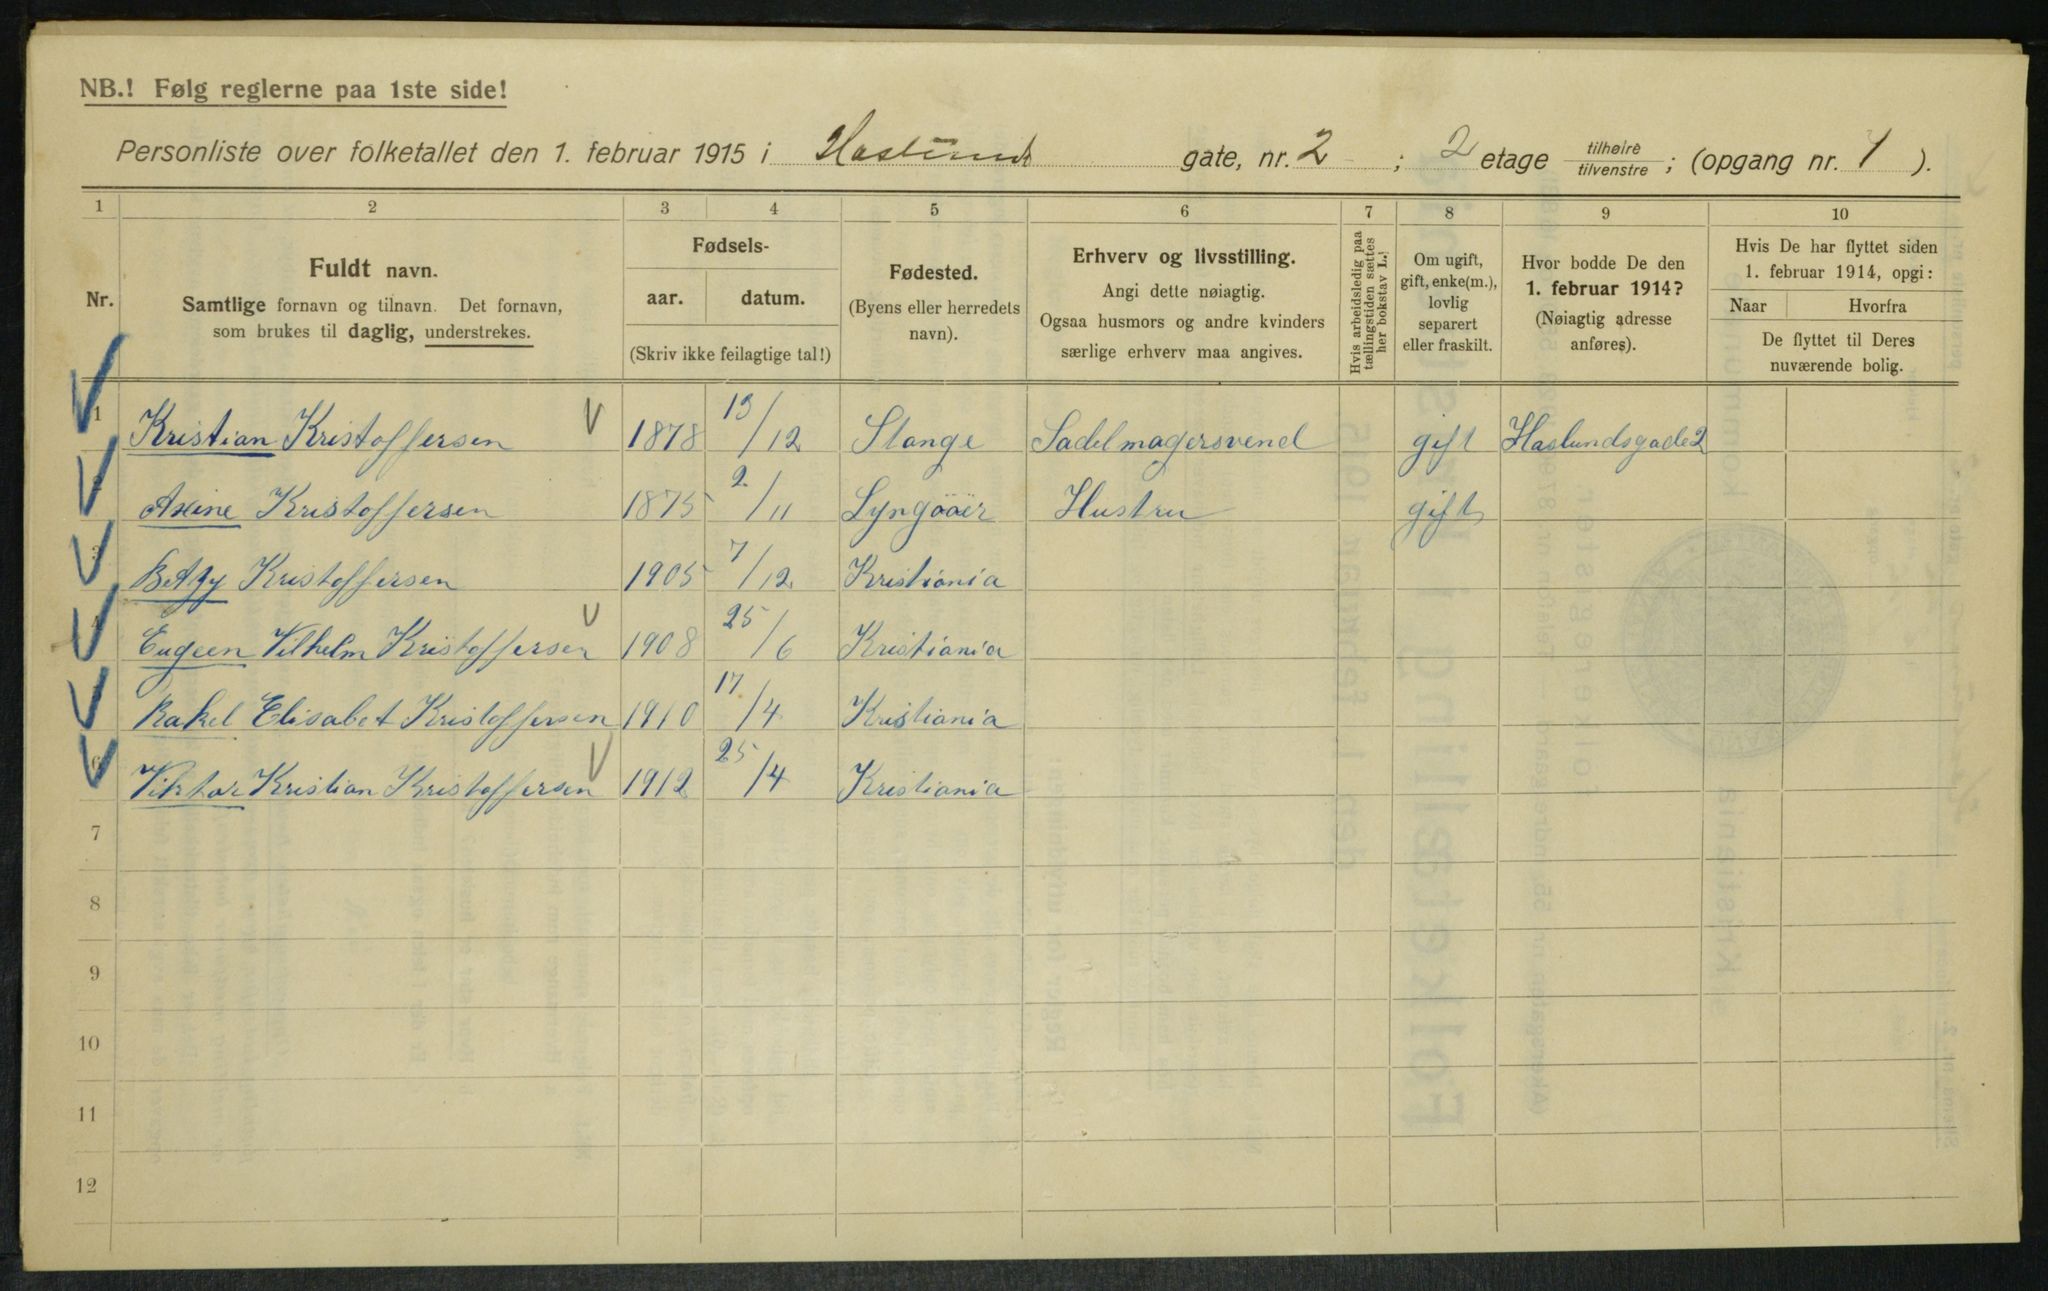 NB.! Følg reglerne paa 1ste side!
Personliste over folketallet den 1. februar 1915 i Haslunds gate, nr. 2 ; 2 etage tilhøire / tilvenstre ; (opgang nr. 1 ).
1 2 3 4 5 6 7 8 9 10
Nr.
Fuldt navn.
Samtlige fornavn og tilnavn. Det fornavn,
som brukes til daglig, understrekes.
Fødsels-
aar. datum.
(Skriv ikke feilagtige tal!)
Fødested.
(Byens eller herredets
navn).
Erhverv og livsstilling.
Angi dette nøiagtig.
Ogsaa husmors og andre kvinders
særlige erhverv maa angives.
Hvis arbeidsledig paa
tællingstiden sættes
her bokstav L.!
Om ugift,
gift, enke(m.),
lovlig
separert
eller fraskilt.
Hvor bodde De den
1. februar 1914?
(Nøiagtig adresse
anføres).
Hvis De har flyttet siden
1. februar 1914, opgi:
Naar Hvorfra
De flyttet til Deres
nuværende bolig.
1 Kristian Kristoffersen 1878 13/12 Stange Sadelmagersvend gift Haslundsgade 2
Axine Kristoffersen 1875 2/11 Lyngöör Hustru gift
3 Betzy Kristoffersen 1905 7/12 Kristiania
4 Eugeen Vilhelm Kristoffersen 1908 25/6 Kristiania
Rakel Elisabet Kristoffersen 1910 17/4 Kristiania
6 Viktor Kristian Kristoffersen 1912 25/4 Kristiania
7
8
9
10
11
12